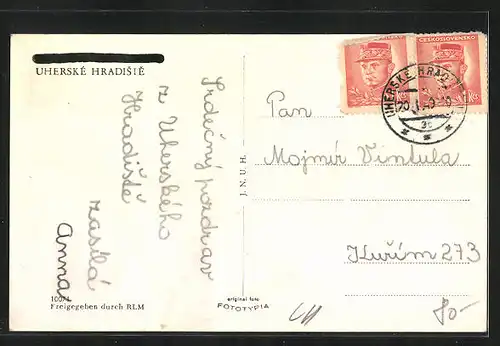 UHERSKÉ HRADIŠTĚ
Srdečný pozdrav
z Uherského
Hradiště
zasílá
Anna
Freigegeben durch RLM
J. N. U. H.
original foto
FOTOTYPIA
ČESKOSLOVENSKO
UHERSKÉ HRAD
Pan
Mojmír Vintula
Kuřim 273
80-